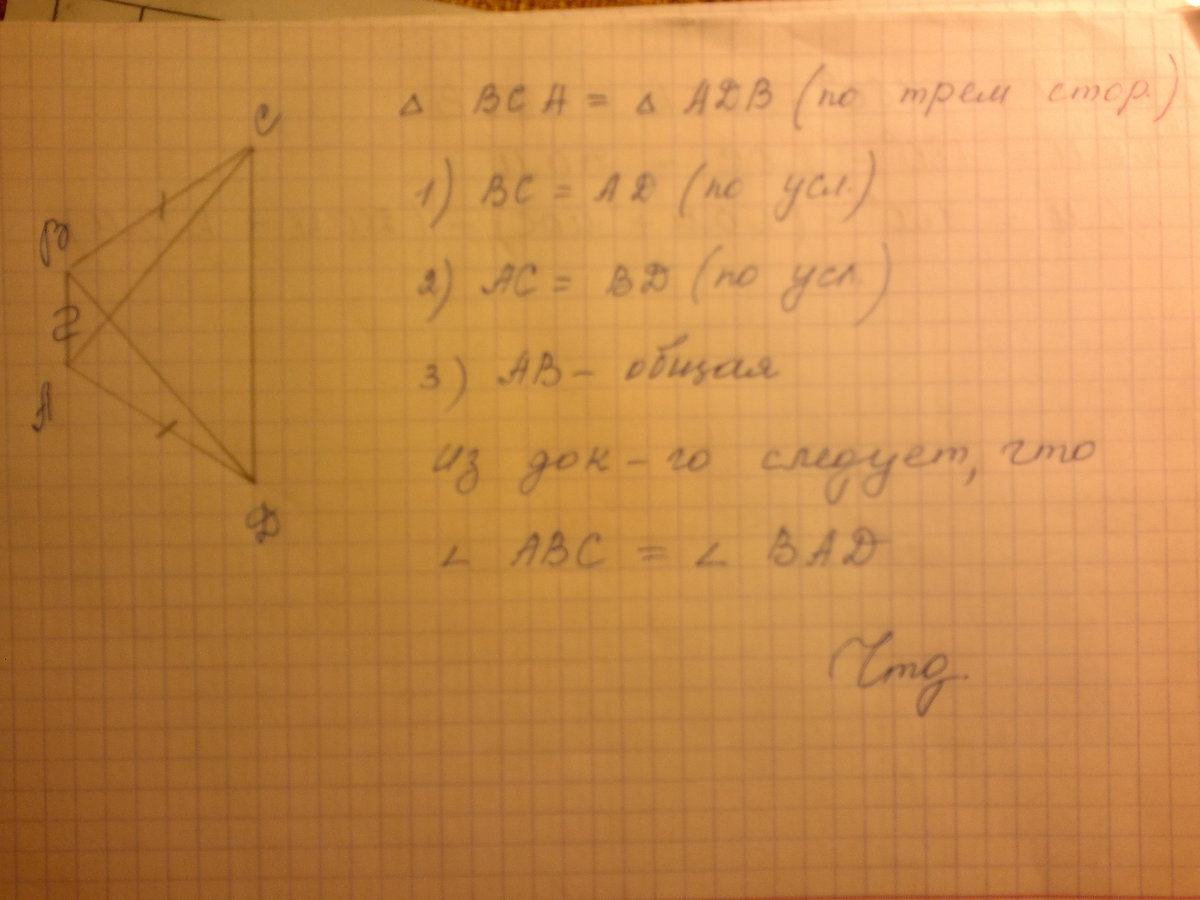 C
△ BCA = △ ADB (по трем стор.)
1) BC = AD (по усл.)
B
2) AC = BD (по усл.)
3) AB - общая
A
Из док-го следует, что
D
∠ ABC = ∠ BAD
Чтд.